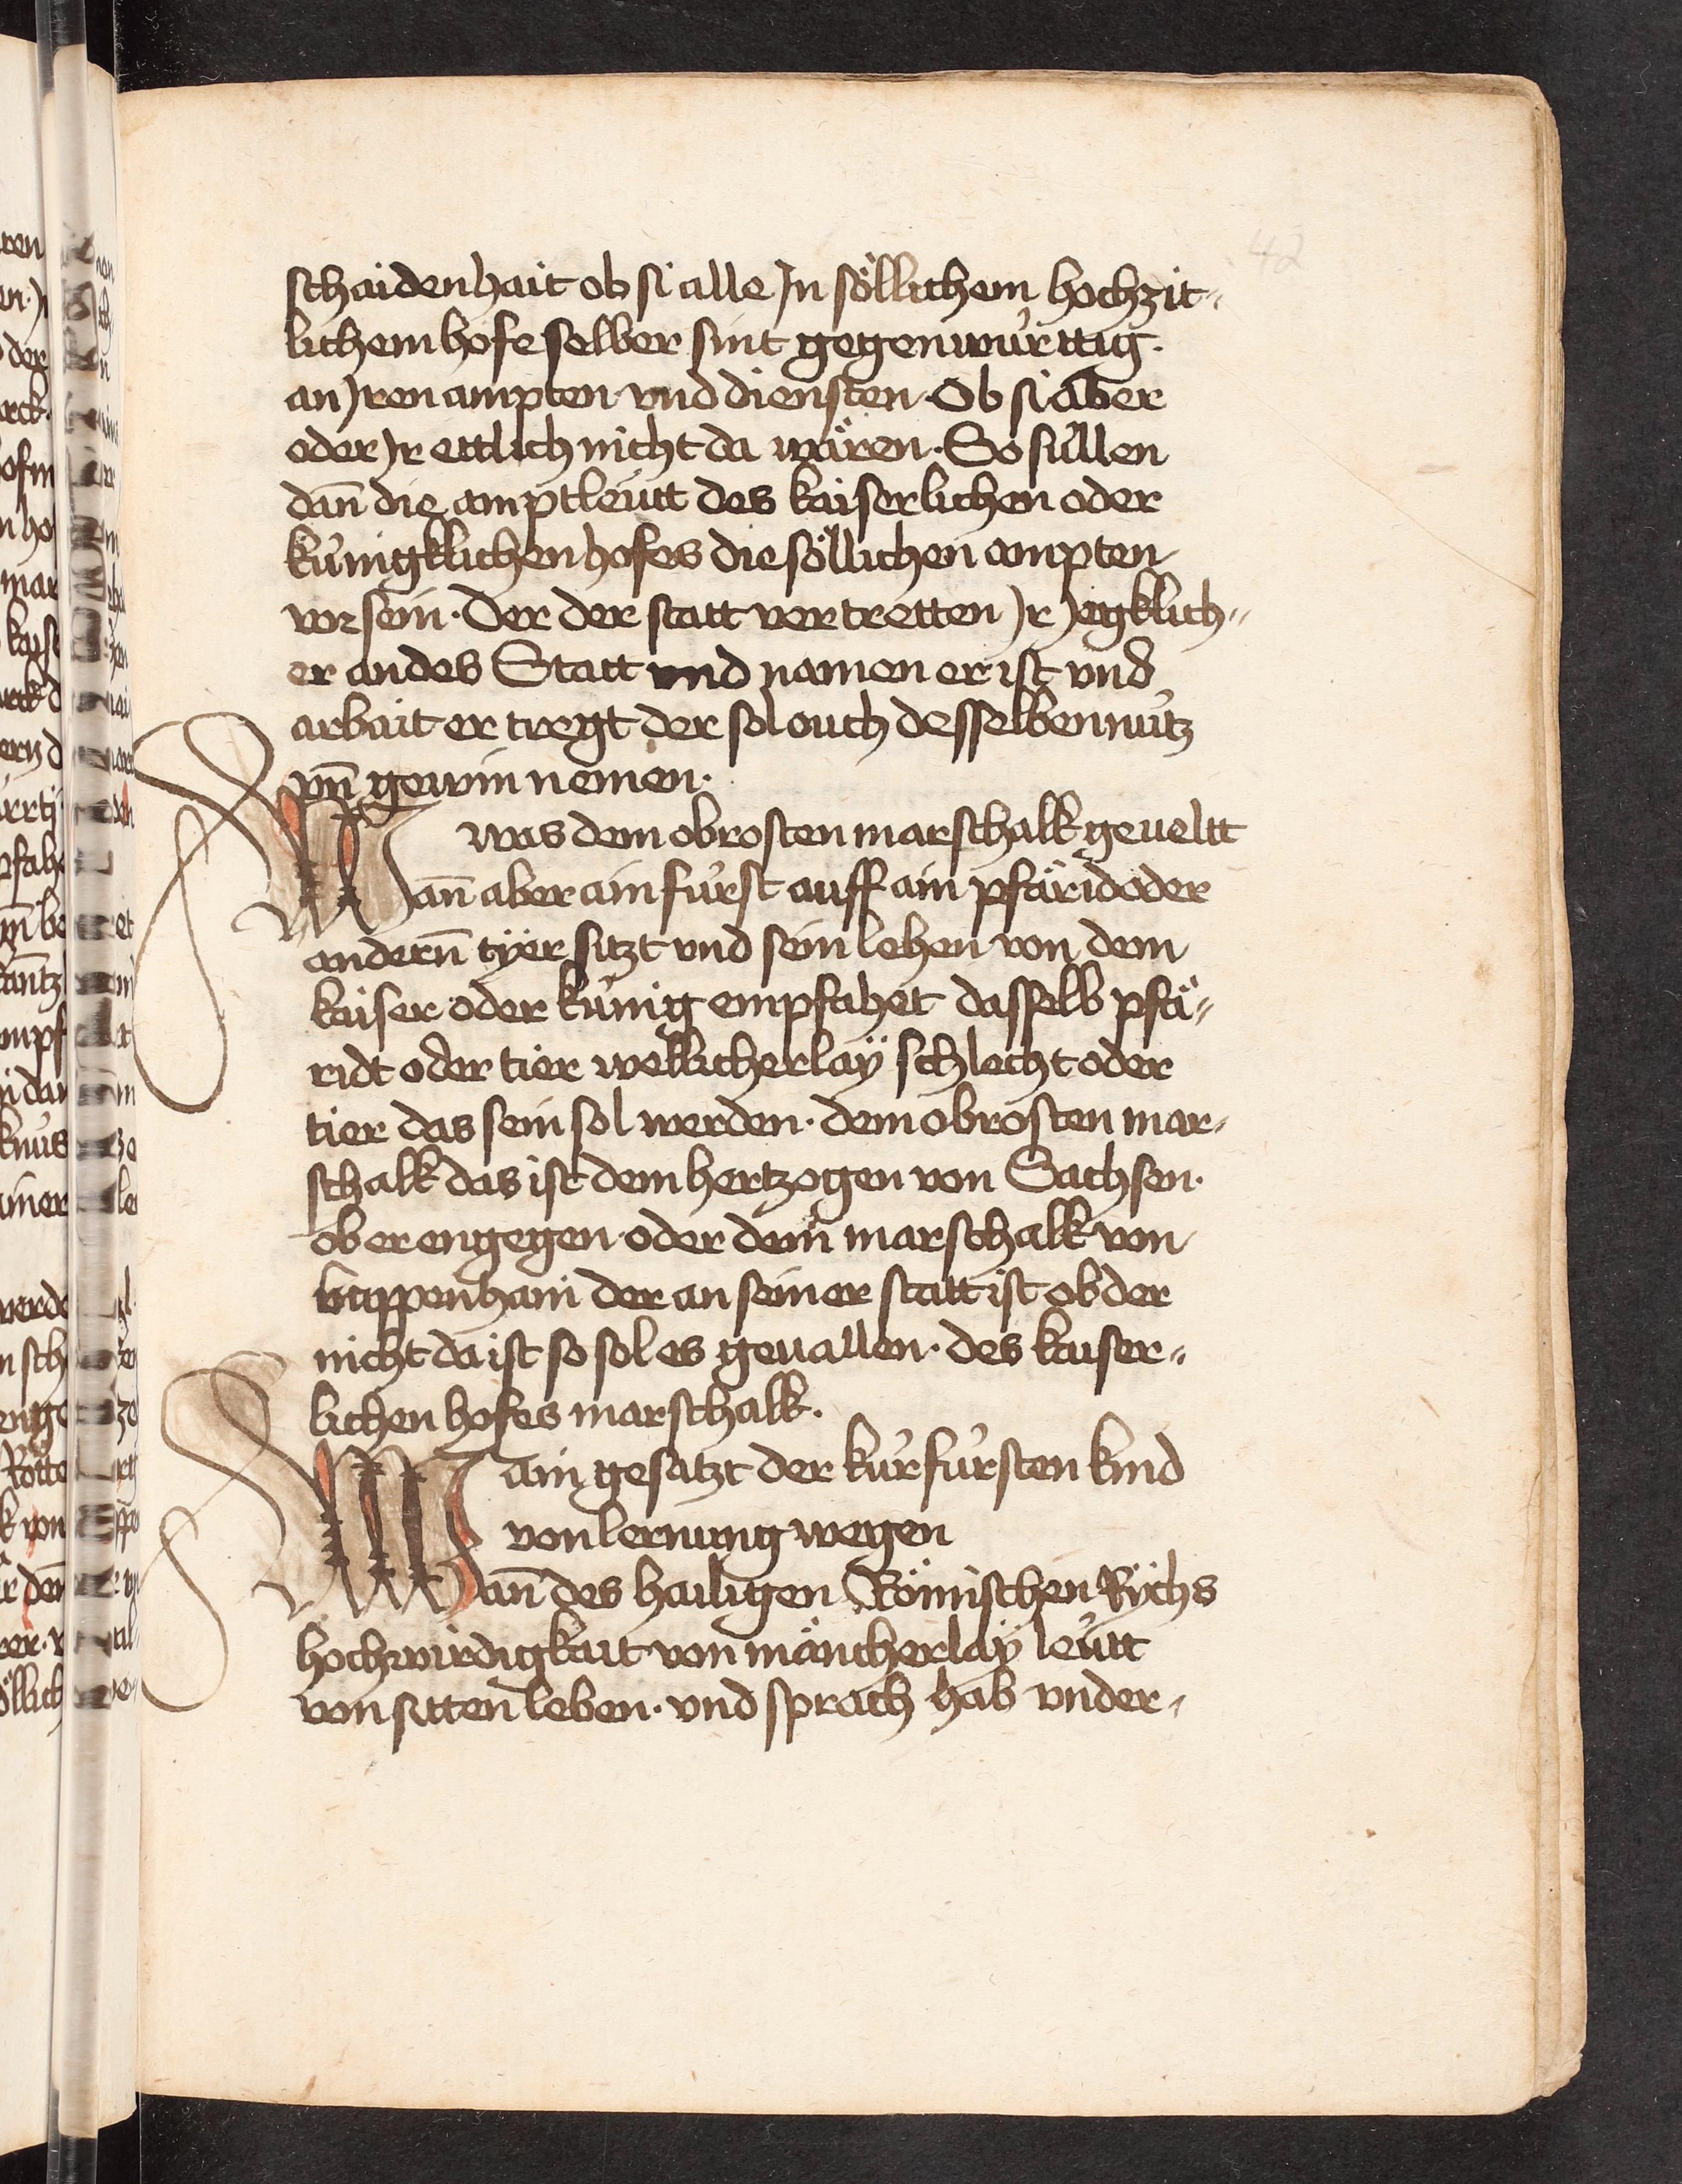 42
schaidenhait ob si alle Jn söllichem hochzit„
lichem hofe selber sint gegenwürttig.
an Jren ampten vnd diensten. Ob si aber
oder Jr ettlich nicht da wären. So süllen
dañ die amptleütt des kaiserlichen oder
künigklichen hofes die söllichen ampten
vor sein. Der der statt vertretten Jr Jegklich„
er an des Statt vnd namen er ist vnd
arbait er tregt der sol ouch desselben nutz
vñ gewin nemen.
was dem obrosten marschalk geueltt
Wañ aber ain fürst auff ain pfärid oder
anderñ tyer sitzt vnd sein lehen von dem
kaiser oder künig empfahet dasselb pfä„
ridt oder tier wellicherlaÿ schlecht oder
tier das sein sol werden. dem obrosten mar„
schalk das ist dem hertzogen von Sachsen.
ob er engegen oder dem marschalk von
bappenham der an seiner statt ist ob der
nicht da ist so sol es geuallen. des kaiser„
lichen hofes marschalk.
ain gesatzt der kurfürsten kind
von lernung wegen
Wañ des hailigen Römischen Rÿchs
hochwirdigkait von mäncherlaÿ leütt
von sitten leben. vnd sprach hab vnder„